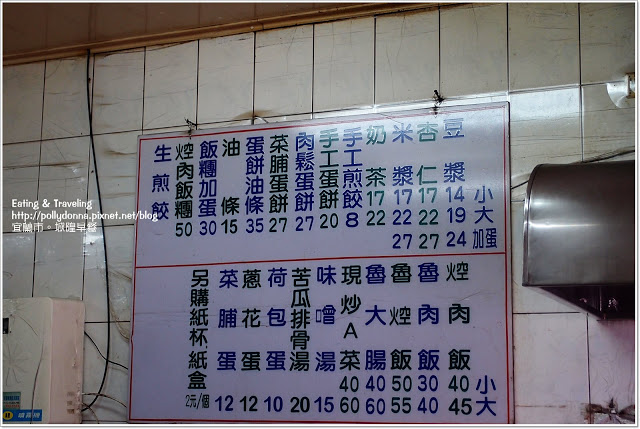 豆漿 14 19 24 小 大 加蛋
杏仁 17 22 27
米漿 17 22 27
奶茶 17 22
手工煎餃 8
手工蛋餅 20
肉鬆蛋餅 27
菜脯蛋餅 27
蛋餅油條 35
油條 15
飯糰加蛋 30
焢肉飯糰 50
生煎餃
焢肉飯 40 45 小 大
魯肉飯 30 40
魯焢飯 50 55
魯大腸 40 60
現炒A菜 40 60
味噌湯 15
苦瓜排骨湯 20
荷包蛋 10
蔥花蛋 12
菜脯蛋 12
另購紙杯紙盒 2元/個
Eating & Traveling
http://pollydonna.pixnet.net/blog
宜蘭市。嶽曜早餐